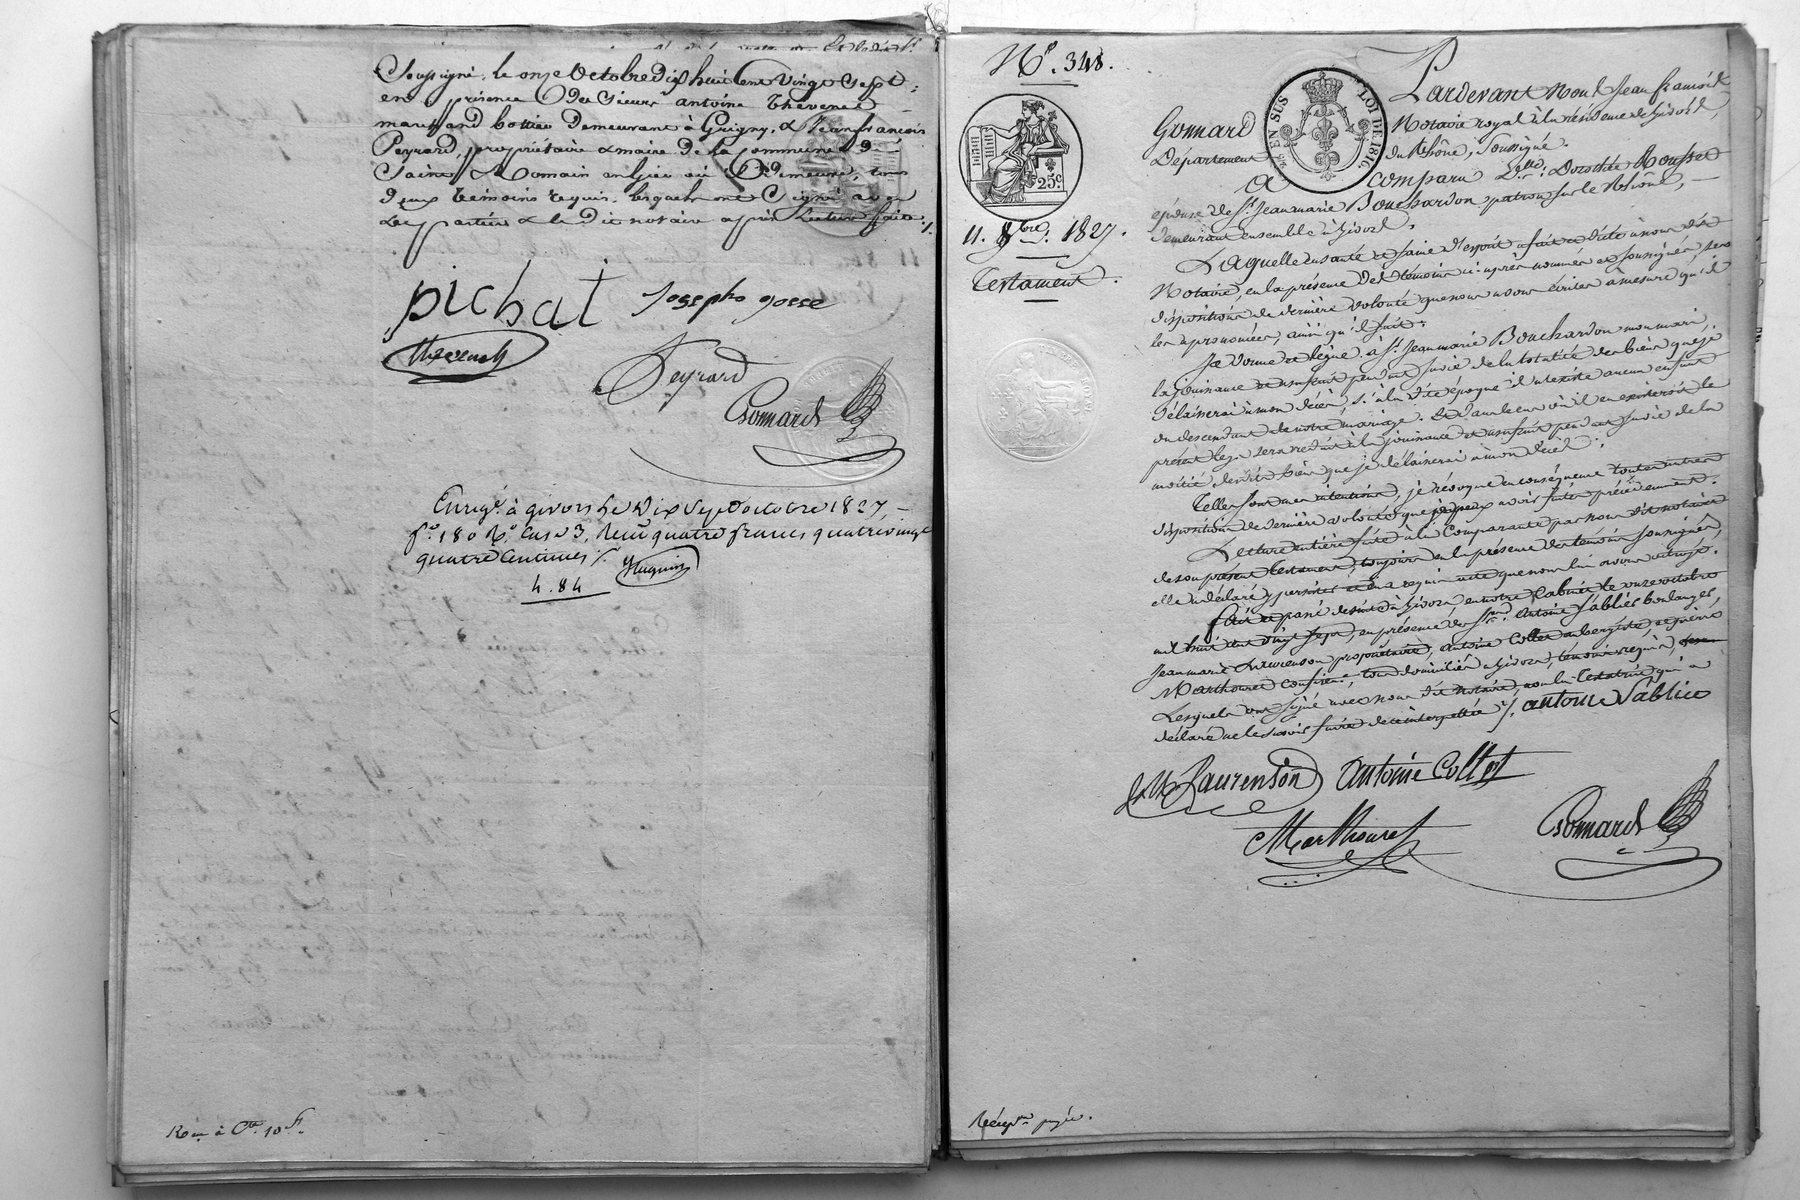 Soussigné, le onze Octobre dix huit cent vingt sept,
en présence des sieurs antoine thevenet
marchand bottier demeurant à Grigny, & Jean françois
Peyrard, propriétaire & maire de la Commune de
Saint Romain en gier où il demeure, tous
deux temoins requis, lesquels ont signé avec
les parties & le dit notaire après lecture faite ./.
pichat
Joseph gosse
thevenet
Peyrard
Gonnard
Enreg.é à givors le dix sept octobre 1827,
f.o 180 R.o Cases 3, Reçu quatre francs quatrevingt
quatre Centimes ./.
4.84
10 f.
N.o 348.
25c
11. 8bre. 1827.
Testament
EN SUS
LOI DE 1816.
TIMBRE ROYAL
Pardevant Nous Jean françois
Gonnard Notaire royal à la résidence de Givors,
Département du Rhône, Soussigné.
A comparu Dorothée Rousset
épouse de S.r Jean marie Bouchardon patron sur le Rhône,
demeurant ensemble à Givors.
Laquelle en santé et saine d'esprit a fait et dicté à nous dit
Notaire, en la présence des témoins ci-après nommés et soussignés ses
dispositions de dernière volonté que nous avons écrites à mesure qu'il
les a prononcées, ainsi qu'il suit:
Je donne et lègue à S.r Jean marie Bouchardon mon mari,
la jouissance et usufruit pendant sa vie de la totalité des biens que je
délaisserai à mon décès, si à la dite époque il n'existe aucun enfant
ou descendant de notre mariage. Et dans le cas où il en existeroit le
présent legs sera réduit à la jouissance et usufruit pendant sa vie de la
moitié desdits biens que je délaisserai à mon décès.
Telles sont mes intentions, je révoque en conséquence toutes autres
dispositions de dernière volonté que je peux avoir faites précédemment.
Lecture entière faite à la Comparante par nous dit notaire
de son présent testament, toujours en la présence des temoins soussignés,
elle a déclaré y persister et en a requis acte que nous lui avons octroyé.
fait et passé à Givors en notre Cabinet le onze octobre
mil huit cent vingt sept, en présence de Antoine Sablier boulanger,
Jean marie Laurenson propriétaire, antoine Collet aubergiste, et
Marthouret confiseur, tous domiciliés à Givors, témoins requis,
Lesquels ont signé avec nous dit Notaire, non la testatrice qui a
déclaré ne le savoir faire de ce interpellée ./. antoine Sablier
J. M. Laurenson
antoine Collet
Marthouret
Gonnard